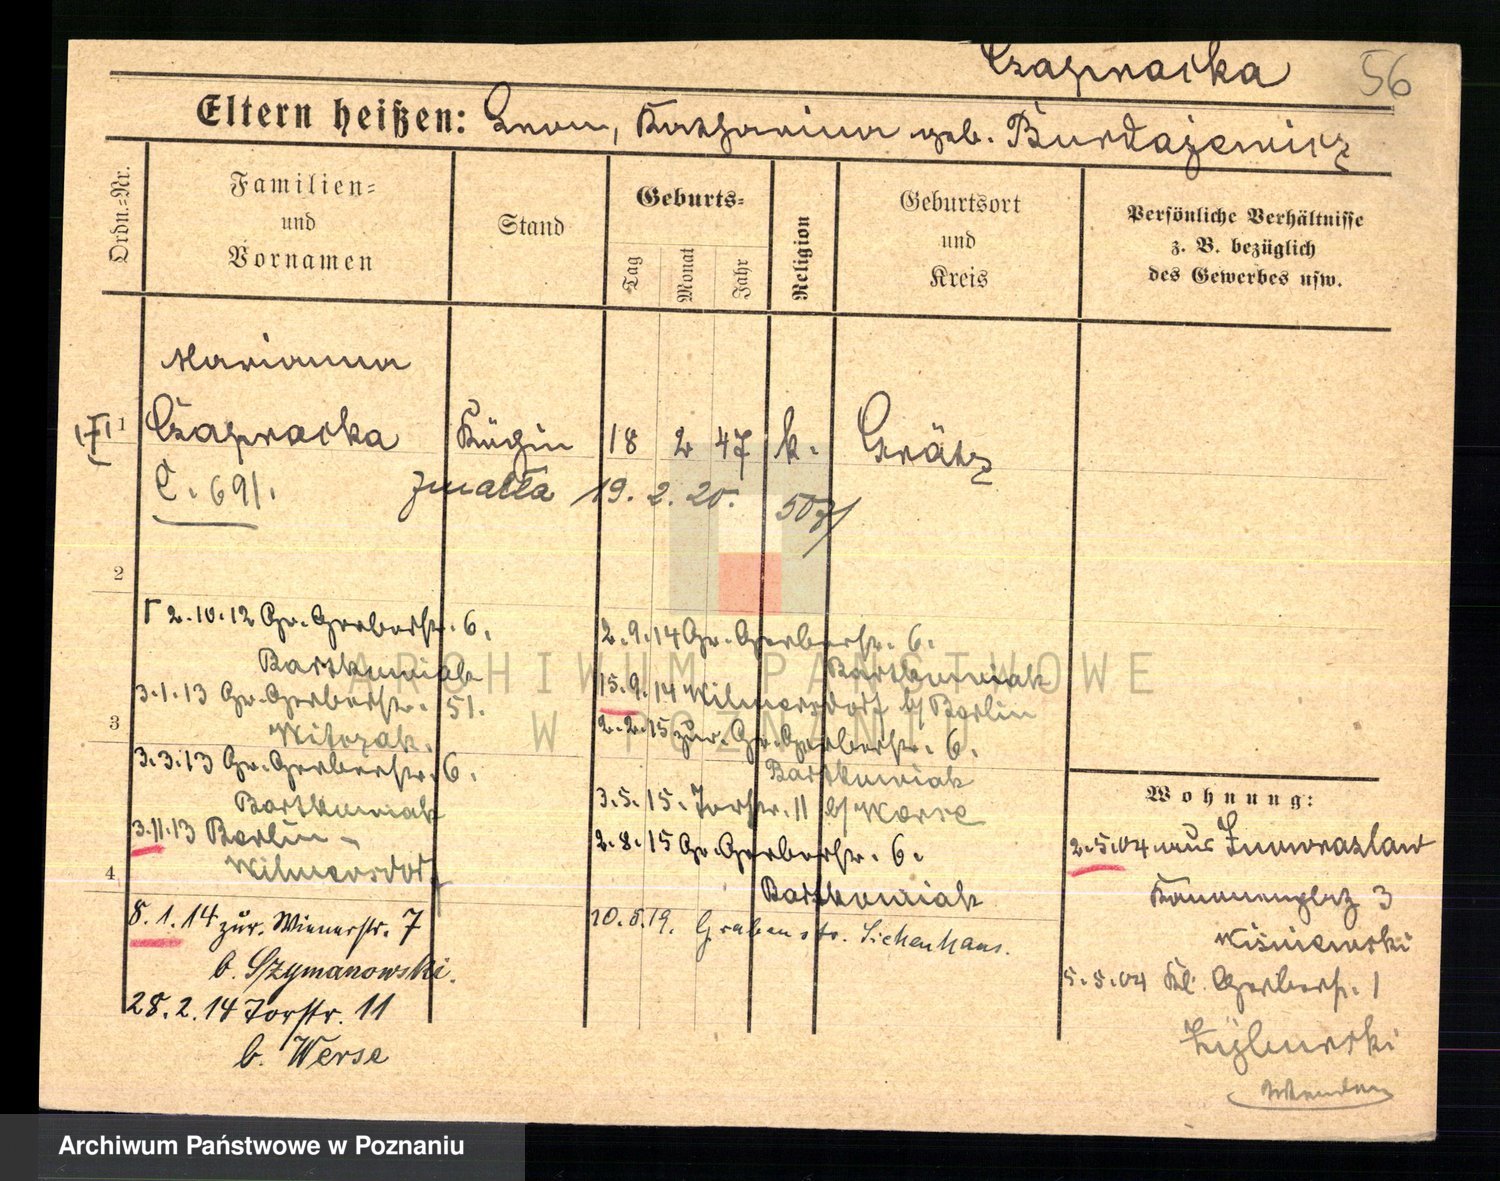 Czapracka 56
Eltern heißen: Leon, Katharina geb. Burdajewicz
Ordn.=Nr.
Familien=
und
Vornamen
Stand
Geburts=
Tag
Monat
Jahr
Religion
Geburtsort
und
Kreis
Persönliche Verhältnisse
z. B. bezüglich
des Gewerbes usw.
Marianna
1 Czapracka Köchin 18 2 47 k. Grätz
C. 691. zmarła 19. 2. 20.
2
2.10.12 Gr. Gerberstr. 6.
Bartkowiak
3.1.13 Gr. Gerberstr. 51.
3
Witczak.
3.3.13 Gr. Gerberstr. 6.
Bartkowiak
3.11.13 Berlin-
4
Wilmersdorf
8.1.14 zur. Wienerstr. 7
b. Szymanowski.
28.2.14 Torstr. 11
b. Werse
2.9.14 Gr. Gerberstr. 6.
Bartkowiak
15.9.14 Wilmersdorf b/Berlin
2.2.15 zur. Gr. Gerberstr. 6.
Bartkowiak
3.5.15. Torstr. 11 b/ Werse
2.8.15 Gr. Gerberstr. 6.
Bartkowiak
20.8.19. Grabenstr. Siechenhaus.
Wohnung:
2.5.04 aus Inowrazlaw
Kanonenplatz 3
Wiśniewski
5.5.04 Kl. Gerberstr. 1
Wenden
ARCHIWUM PAŃSTWOWE
W POZNANIU
Archiwum Państwowe w Poznaniu